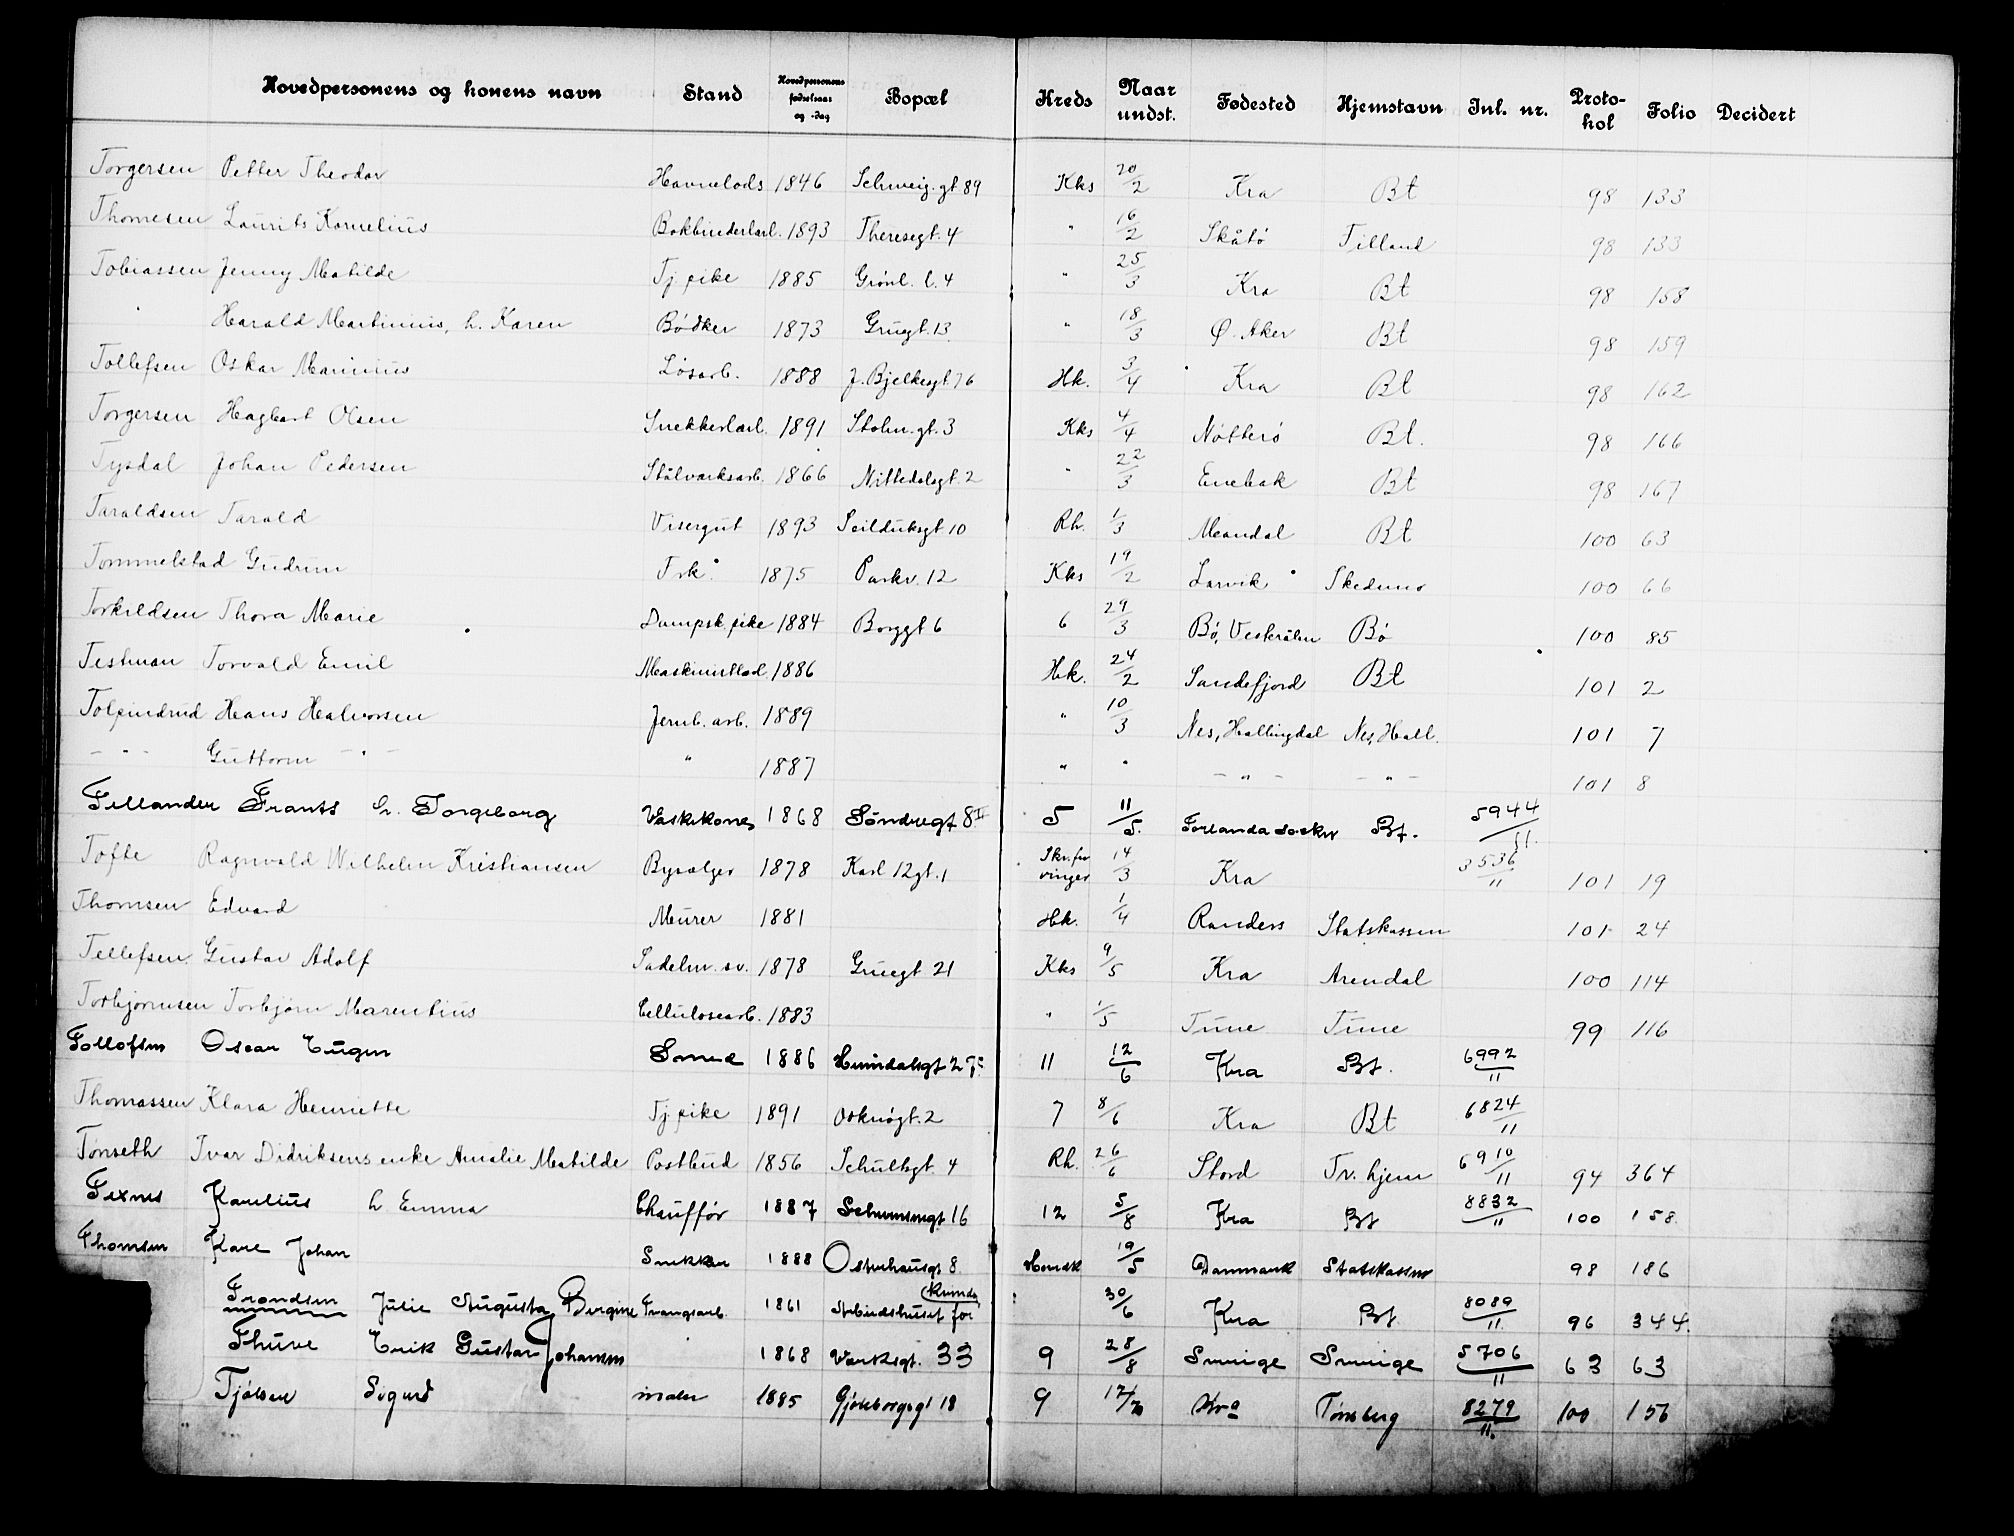 Hovedpersonens og konens navn Stand Hovedpersonens fødselsaar og -dag Bopæl Kreds Naar undst. Fødested Hjemstavn Inl. nr. Protokol Folio Decidert
Torgersen Petter Theodor Havnelods 1846 Schweig.gt 89 Kks 20/2 Kra Bt 98 133
Thomesen Laurits Kornelius Bokbinderlærl. 1893 Theresegt. 4 " 16/2 Skåtø Tilland 98 133
Tobiassen Jenny Matilde Tj. pike 1885 Grønl. l. 4 " 25/3 Kra Bt 98 158
" Harald Martinius, h. Karen Bødker 1873 Gruegt. 13 " 18/3 Ø. Aker Bt 98 159
Tollefsen Oskar Marinius Løsarb. 1888 J. Bjelkesgt. 76 Hk. 3/4 Kra Bt 98 162
Torgersen Hagbart Olsen Snekkerlærl. 1891 Stolm.gt. 3 Kks 4/4 Nøtterø Bt. 98 166
Tysdal Johan Pedersen Stålvarksarb. 1866 Nittedalsgt. 2 " 22/3 Enebak Bt 98 167
Taraldsen Tarald Visergut 1893 Seilduksgt 10 Rh. 1/3 Mandal Bt 100 63
Tommelstad Gudrun Frk. 1875 Parkv. 12 Kks 19/2 Larvik Skedsmo 100 66
Torkildsen Thora Marie Dampsk.pike 1884 Borggt 6 6 29/3 Bø, Vesterålen Bø 100 85
Testman Torvald Emil Maskinistlod. 1886 Hk. 24/2 Sandefjord Bt 101 2
Tolpindrud Hans Halvorsen Jernb. arb. 1889 " 10/3 Nes, Hallingdal Nes, Hall. 101 7
- " - Guttorm - " - " 1887 " " - " - - " - 101 8
Tellander Frants h. Torgeborg Vaskekones 1868 Søndregt 8 II 5 11/5. Torlanda socken Bt. 5944/11.
Tofte Ragnvald Wilhelm Kristiansen Byselger 1878 Karl 12gt. 1 14/3 Kra 3536/11 101 19
Thomsen Edvard Murer 1881 Hk. 1/4 Randers Statskassen 101 24
Tellefsen Gustav Adolf Sadelm. sv. 1878 Gruegt 21 Kks 9/5 Kra Arendal 100 114
Torbjørnsen Torbjørn Marentius Cellulosearb. 1883 " 1/5 Tune Tune 99 116
Tollofsen Oscar Eugen Smed 1886 Heimdalsgt 27 11 12/6 Kra Bt. 6992/11
Thomassen Klara Henriette Tj pike 1891 Oskrøgt. 2 7 8/6 Kra Bt 6824/11
Tønseth Ivar Didriksens enke Amalie Matilde Postbud 1856 Schultsgt. 4 Rh. 26/6 Stord Tv. hjem 6910/11 94 364
Texnes Karelius h Emma Chauffør 1887 Schwensengt 16 12 5/8 Kra Bt 8832/11 100 158.
Thomsen Kare Johan Snekker 1888 Osterhausgt 8 Hovedk 19/5 Danmark Statskassen 98 186
Trondsen Julie Augusta Bergine Tvangsarb. 1861 Arbeidshuset for kvinder 30/6 Kra Bt 8089/11. 96 344.
Thuve Erik Gustav Johansen 1868 Værksgt. 33 9 28/8 Sverige Sverige 5706/11 63 63
Tjølsen Sigurd maler 1885 Gjøteborgsgt 18 9 Kra Tønsberg 8279/11. 100 156